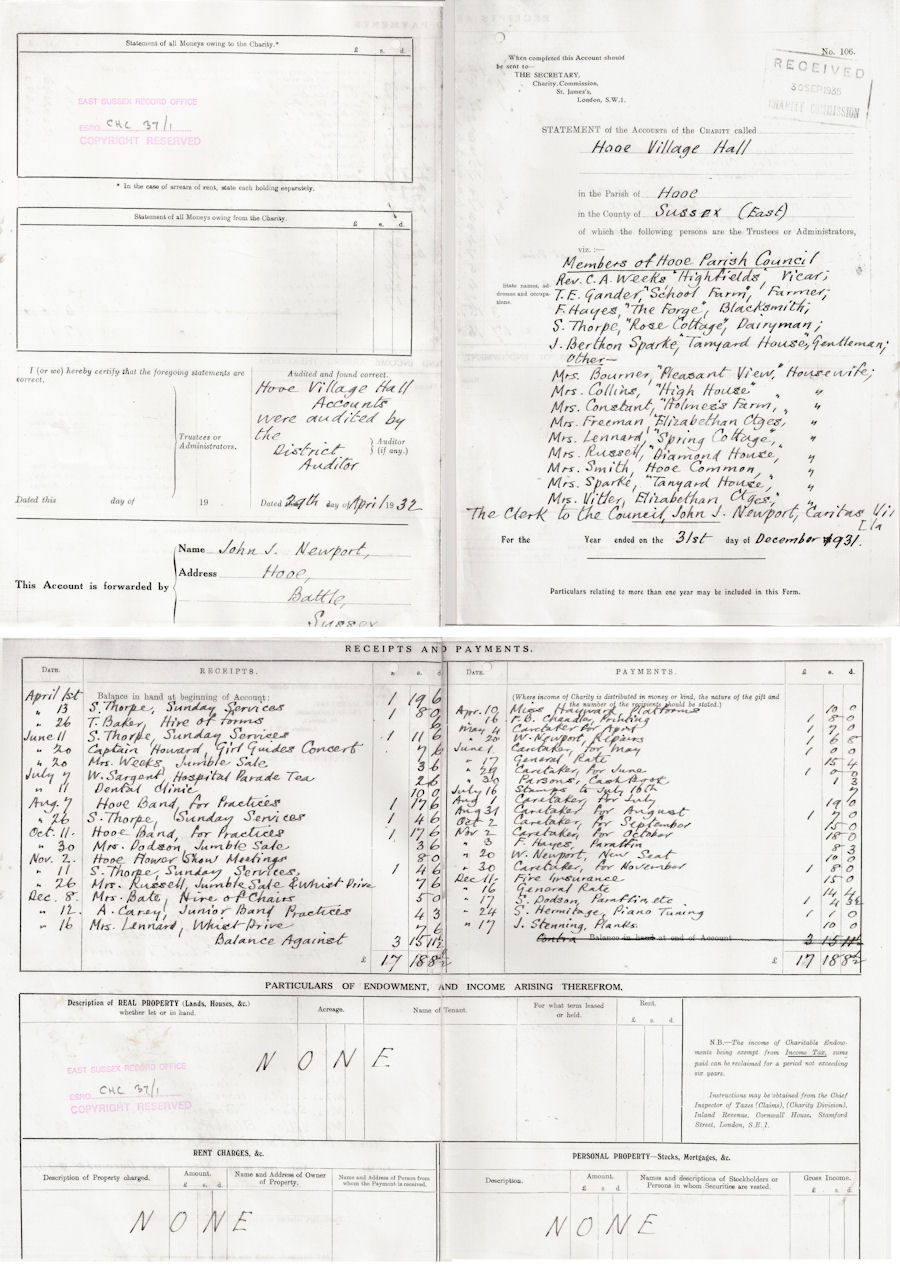 Statement of all Moneys owing to the Charity.*
£ s. d.
EAST SUSSEX RECORD OFFICE
ESRO CHC 37/1
COPYRIGHT RESERVED
* In the case of arrears of rent, state each holding separately.
Statement of all Moneys owing from the Charity.
£ s. d.
I (or we) hereby certify that the foregoing statements are correct.
Trustees or Administrators.
Dated this day of 19
Audited and found correct.
Hooe Village Hall
Accounts
were audited by
the
District
Auditor
Auditor (if any.)
Dated 29th day of April 1932
This Account is forwarded by
Name John J. Newport,
Address Hooe,
Battle,
Sussex
No. 106.
When completed this Account should
be sent to—
THE SECRETARY,
Charity Commission,
St. James's,
London, S.W.1.
RECEIVED
30 SEP 1935
CHARITY COMMISSION
STATEMENT of the Accounts of the Charity called
Hooe Village Hall
in the Parish of Hooe
in the County of Sussex (East)
of which the following persons are the Trustees or Administrators,
viz. :—
State names, addresses and occupations.
Members of Hooe Parish Council
Rev. C. A. Weeks "Highfields", Vicar;
T. E. Gander, "School Farm", Farmer;
F. Hayes, "The Forge", Blacksmith;
S. Thorpe, "Rose Cottage", Dairyman;
J. Berthon Sparke, "Tanyard House", Gentleman;
Other—
Mrs. Bourner, "Pleasant View," Housewife;
Mrs. Collins, "High House" " "
Mrs. Constant, "Holmes's Farm, " "
Mrs. Freeman "Elizabethan Ctges, "
Mrs. Lennard, "Spring Cottage", "
Mrs. Russell, "Diamond House, "
Mrs. Smith, Hooe Common, "
Mrs. Sparke, "Tanyard House," "
Mrs. Vitler, Elizabethan Ctges," "
The Clerk to the Council, John J. Newport, "Caritas Vil
[la
For the Year ended on the 31st day of December 1931.
Particulars relating to more than one year may be included in this Form.
RECEIPTS AND PAYMENTS.
DATE. RECEIPTS. s. s. d.
April 1st Balance in hand at beginning of Account: 1 19 6
" 13 S. Thorpe, Sunday Services 1 8 0
" 26 T. Baker, Hire of forms 6
June 11 S. Thorpe, Sunday Services 1 11 6
" 20 Captain Howard, Girl Guides Concert 7 6
" 20 Mrs. Weeks, Jumble Sale 3 6
July 7 W. Sargent, Hospital Parade Tea 2 6
" 11 Dental Clinic 10 0
Aug. 7 Hooe Band, for Practices 1 17 6
" 26 S. Thorpe, Sunday Services 1 4 6
Oct. 11. Hooe Band, for Practices 1 17 6
" 30 Mrs. Dodson, Jumble Sale 3 6
Nov. 2. Hooe Flower Show Meetings 8 0
" 11 S. Thorpe, Sunday Services, 1 4 6
" 26 Mrs. Russell, Jumble Sale & Whist Drive 7 6
Dec. 8. Mrs. Bate, Hire of Chairs 5 0
" 12. A. Carey, Junior Band Practices 4 3
" 16 Mrs. Lennard, Whist Drive 7 6
Balance Against 3 15 11½
£ 17 18 8½
DATE. PAYMENTS. £ s. d.
(Where income of Charity is distributed in money or kind, the nature of the gift and
the number of the recipients should be stated.)
Apr. 10, Miss Hayward, Platforms 10 0
" 16 P. B. Chandler, Printing 1 8 0
May 4 Caretaker for April 1 7 0
" 20 W. Newport, Repairs 1 6 8
June 1. Caretaker, for May
" 17 General Rate 15 4
" 29 Caretaker, for June 1 0 0
" 30 Parsons, Cash Book 1 3
July 16 Stamps to July 16th 7
Aug 1 Caretaker, for July 19 0
Aug 31 Caretaker for August 1 7 0
Oct 2 Caretaker, for September 15 0
Nov 2 Caretaker, for October 18 0
" 3 F. Hayes, Paraffin 8 3
" 20 W. Newport, New Seat 10 0
" 30 Caretaker, for November 1 8 0
Dec 11 Fire Insurance 15 0
" 16 General Rate 14 4
" 17 S. Dodson, Paraffin etc 1 4 3½
" 24 S. Hermitage, Piano Tuning 1 1 0
" 17 J. Stenning, Planks. 10 0
Contra Balance in hand at end of Account 3 15 11½
£ 17 18 8½
PARTICULARS OF ENDOWMENT, AND INCOME ARISING THEREFROM.
Description of REAL PROPERTY (Lands, Houses, &c.) whether let or in hand.
Acreage.
Name of Tenant.
For what term leased or held.
Rent.
£ s. d.
NONE
EAST SUSSEX RECORD OFFICE
ESRO CHC 37/1
COPYRIGHT RESERVED
N.B.—The income of Charitable Endow-
ments being exempt from Income Tax, sums
paid can be reclaimed for a period not exceeding
six years.
Instructions may be obtained from the Chief
Inspector of Taxes (Claims), (Charity Division),
Inland Revenue, Cornwall House, Stamford
Street, London, S.E.1.
RENT CHARGES, &c.
Description of Property charged.
Amount.
£ s. d.
Name and Address of Owner of Property.
Name and Address of Person from whom the Payment is received.
NONE
PERSONAL PROPERTY—Stocks, Mortgages, &c.
Description.
Amount.
£ s. d.
Names and descriptions of Stockholders or Persons in whom Securities are vested.
Gross Income.
£ s. d.
NONE